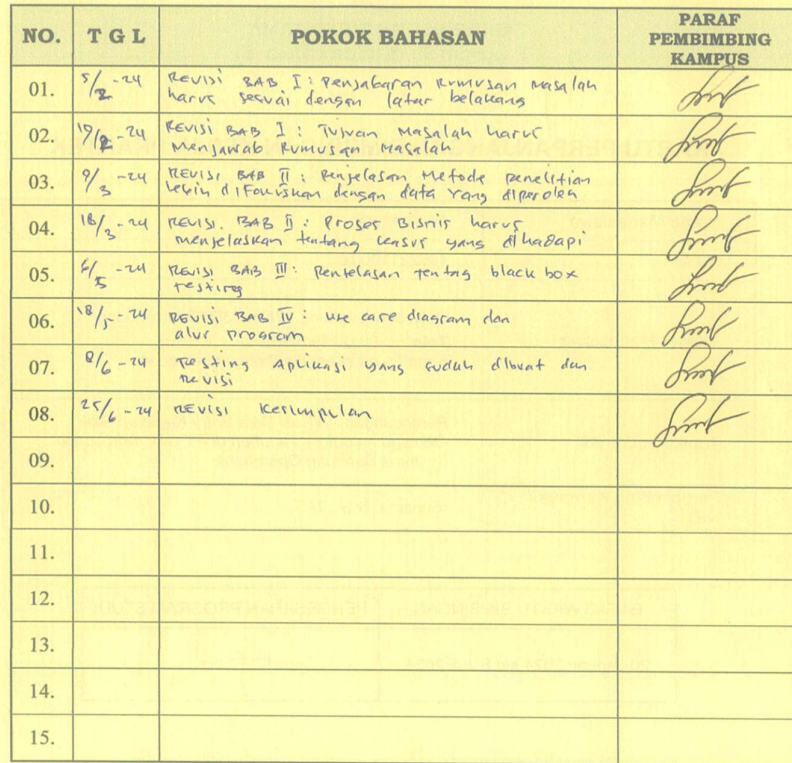 NO. TGL POKOK BAHASAN PARAF PEMBIMBING KAMPUS
01. 5/2-24 Revisi BAB I : Penjabaran Rumusan Masalah
harus sesuai dengan latar belakang
02. 19/2-24 Revisi BAB I : Tujuan Masalah harus
Menjawab Rumusan Masalah
03. 9/3-24 Revisi BAB II : Penjelasan Metode penelitian
lebih difokuskan dengan data yang diperoleh
04. 18/3-24 Revisi. BAB II : Proses Bisnis harus
menjelaskan tentang kasus yang dihadapi
05. /5-24 Revisi BAB III : Penjelasan tentag black box
testing
06. 18/5-24 Revisi BAB IV : use case diagram dan
alur program
07. 8/6-24 Testing Aplikasi yang sudah dibuat dan
Revisi
08. 25/6-24 Revisi Kesimpulan
09.
10.
11.
12.
13.
14.
15.